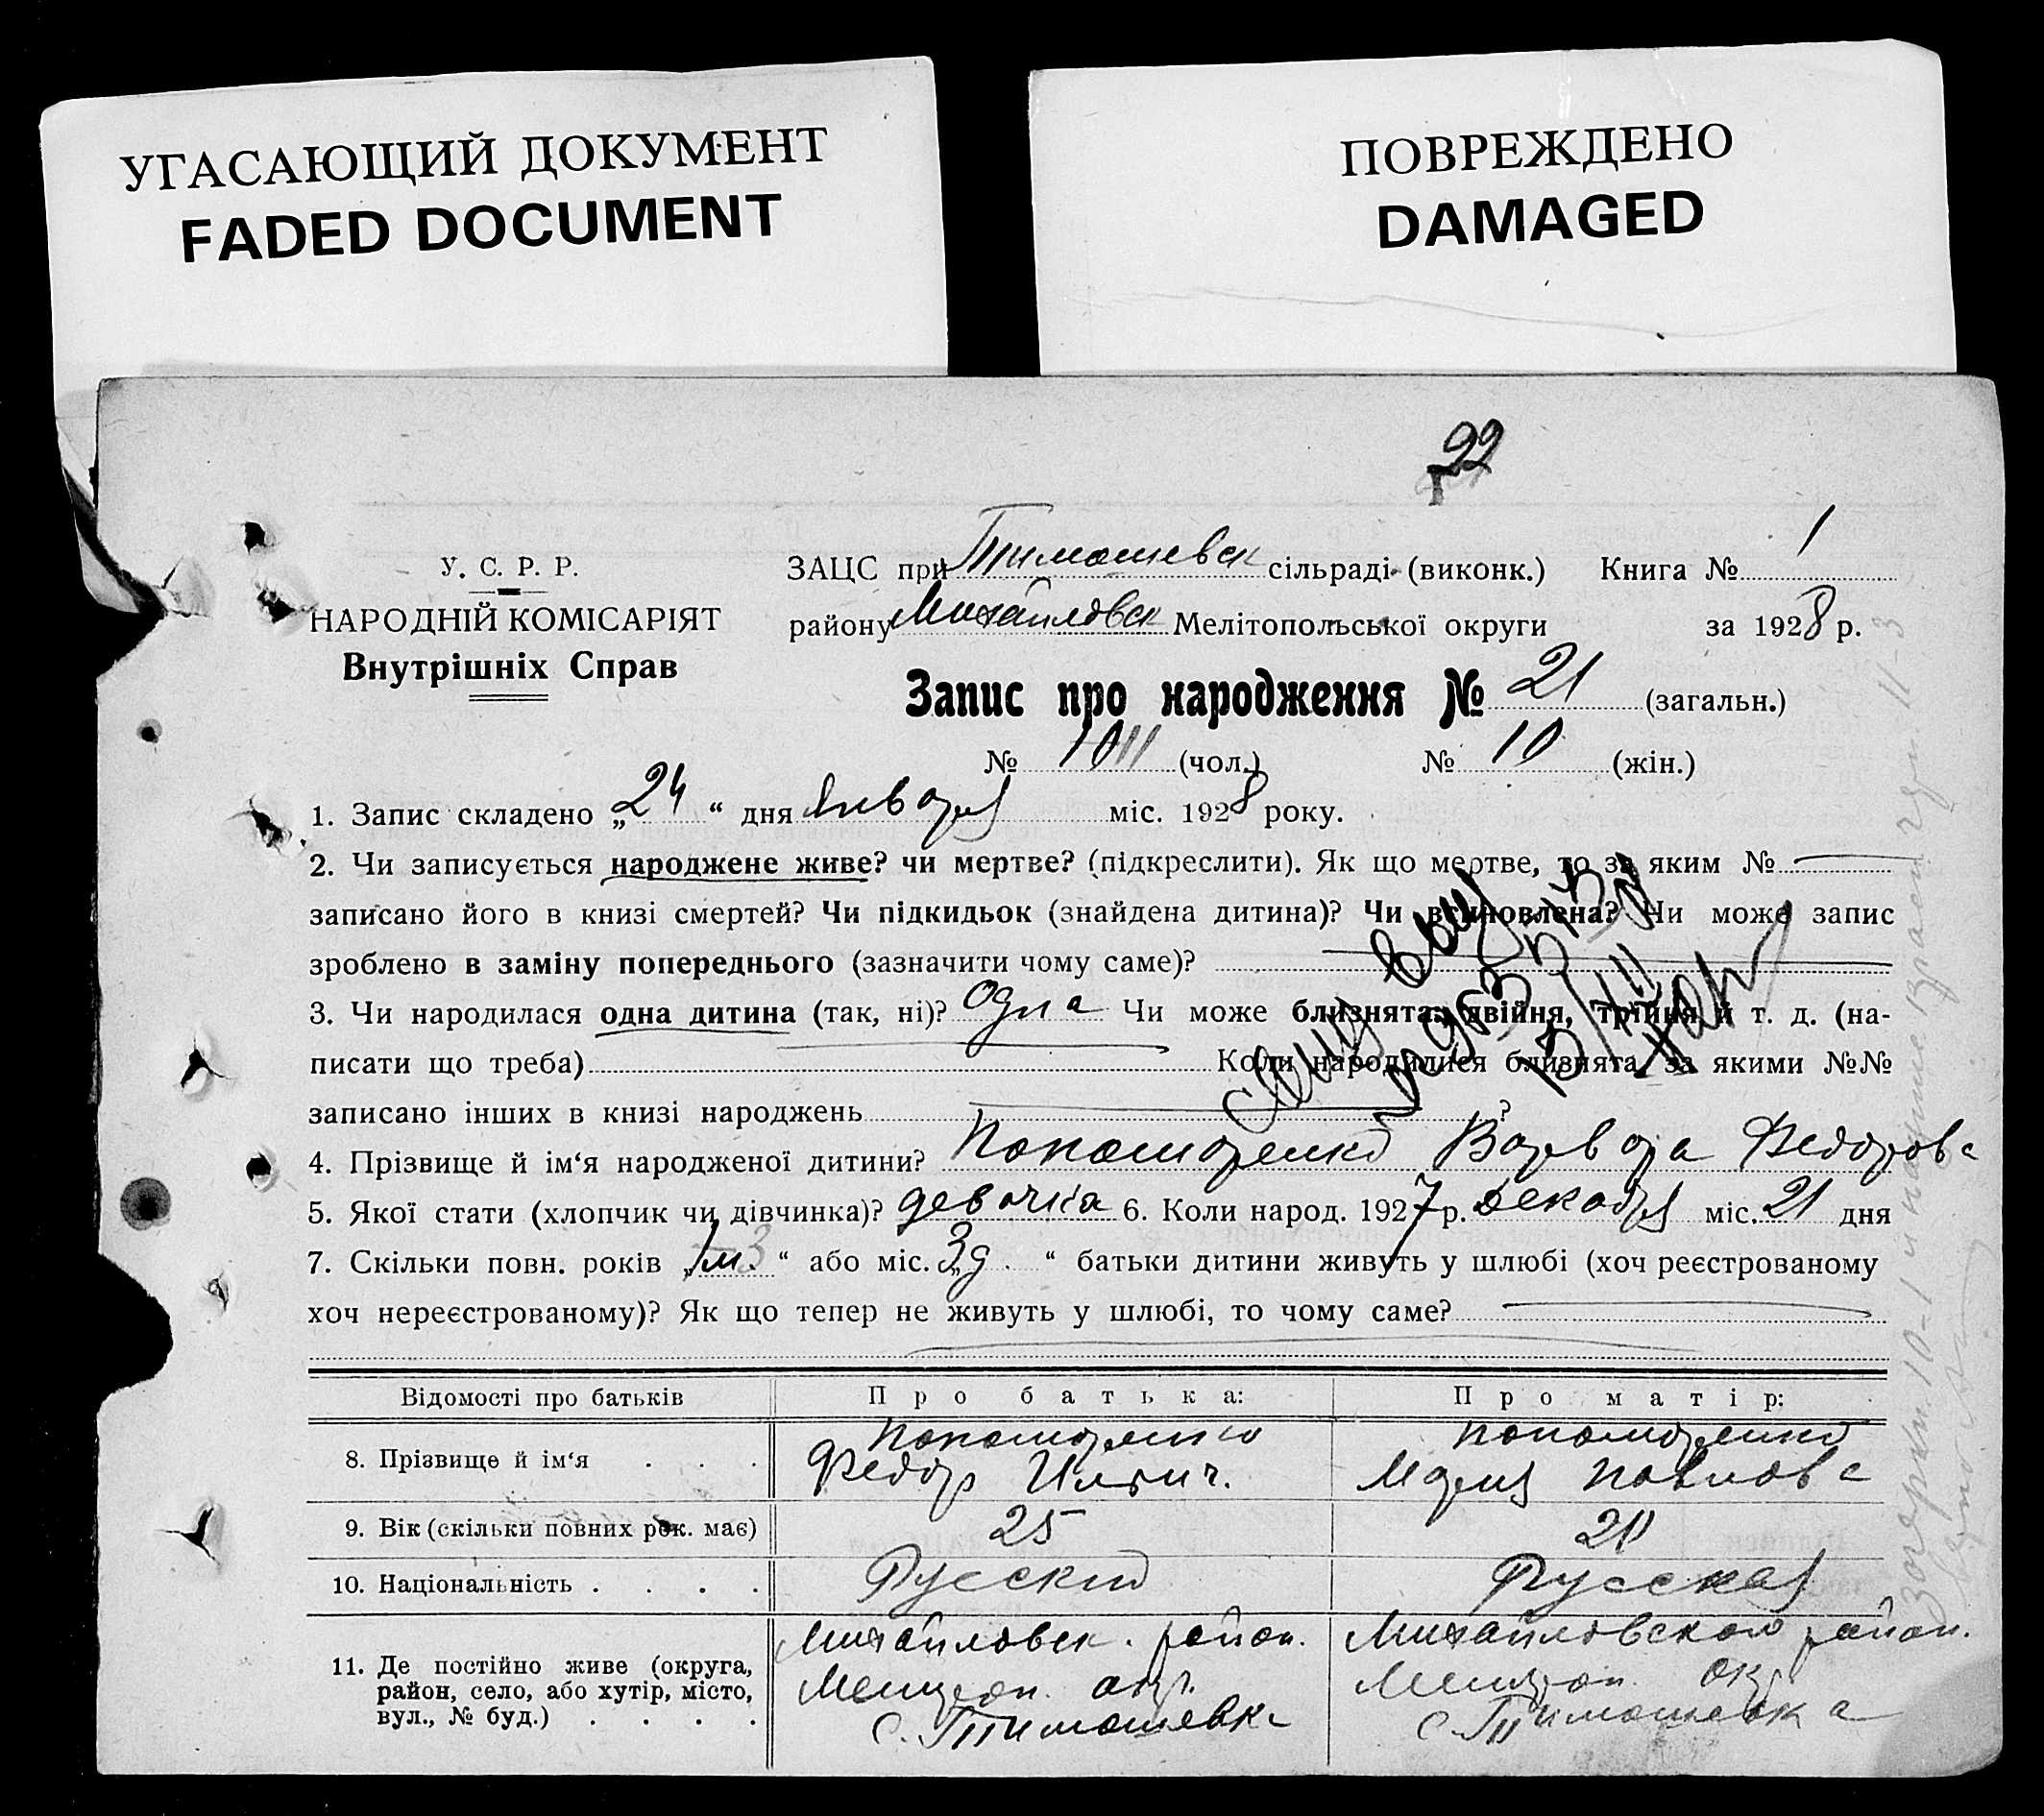 УГАСАЮЩИЙ ДОКУМЕНТ
FADED DOCUMENT
ПОВРЕЖДЕНО
DAMAGED
22
У. С. Р. Р.
НАРОДНІЙ КОМІСАРІЯТ
Внутрішніх Справ
ЗАЦС при Тимошевск сільраді (виконк.) Книга № 1
району Михайловск Мелітопольської округи за 1928 р.
Запис про народження № 21 (загальн.)
№ 1011 (чол.) № 10 (жін.)
1. Запис складено „24“ дня Января міс. 1928 року.
2. Чи записується народжене живе? чи мертве? (підкреслити). Як що мертве, то за яким №
записано його в книзі смертей? Чи підкидьок (знайдена дитина)? Чи всиновлена? Чи може запис
зроблено в заміну попереднього (зазначити чому саме)?
3. Чи народилася одна дитина (так, ні)? Одна Чи може близнята: двійня, трійня й т. д. (на-
писати що треба) Коли народилися близнята, за якими №№
записано інших в книзі народжень ?
4. Прізвище й ім‘я народженої дитини? Понамаренко Варвара Федоровна
5. Якої стати (хлопчик чи дівчинка)? девочка 6. Коли народ. 1927 р. Декабря міс. 21 дня
7. Скільки повн. років „1м.“ або міс. „3д.“ батьки дитини живуть у шлюбі (хоч реєстрованому
хоч нереєстрованому)? Як що тепер не живуть у шлюбі, то чому саме?
Відомості про батьків Про батька: Про матір:
8. Прізвище й ім‘я . . . Понамаренко Понамаренко
Федор Ильич. Мария Павловна
9. Вік (скільки повних рок. має) 25 20
10. Національність . . . . Русский Русская
11. Де постійно живе (округа, район, село, або хутір, місто, вул., № буд.) . . . .
Михайловск. район. Михайловского район.
Мелитоп. окр. Мелитоп. окр
с. Тимошевка с. Тимошевка